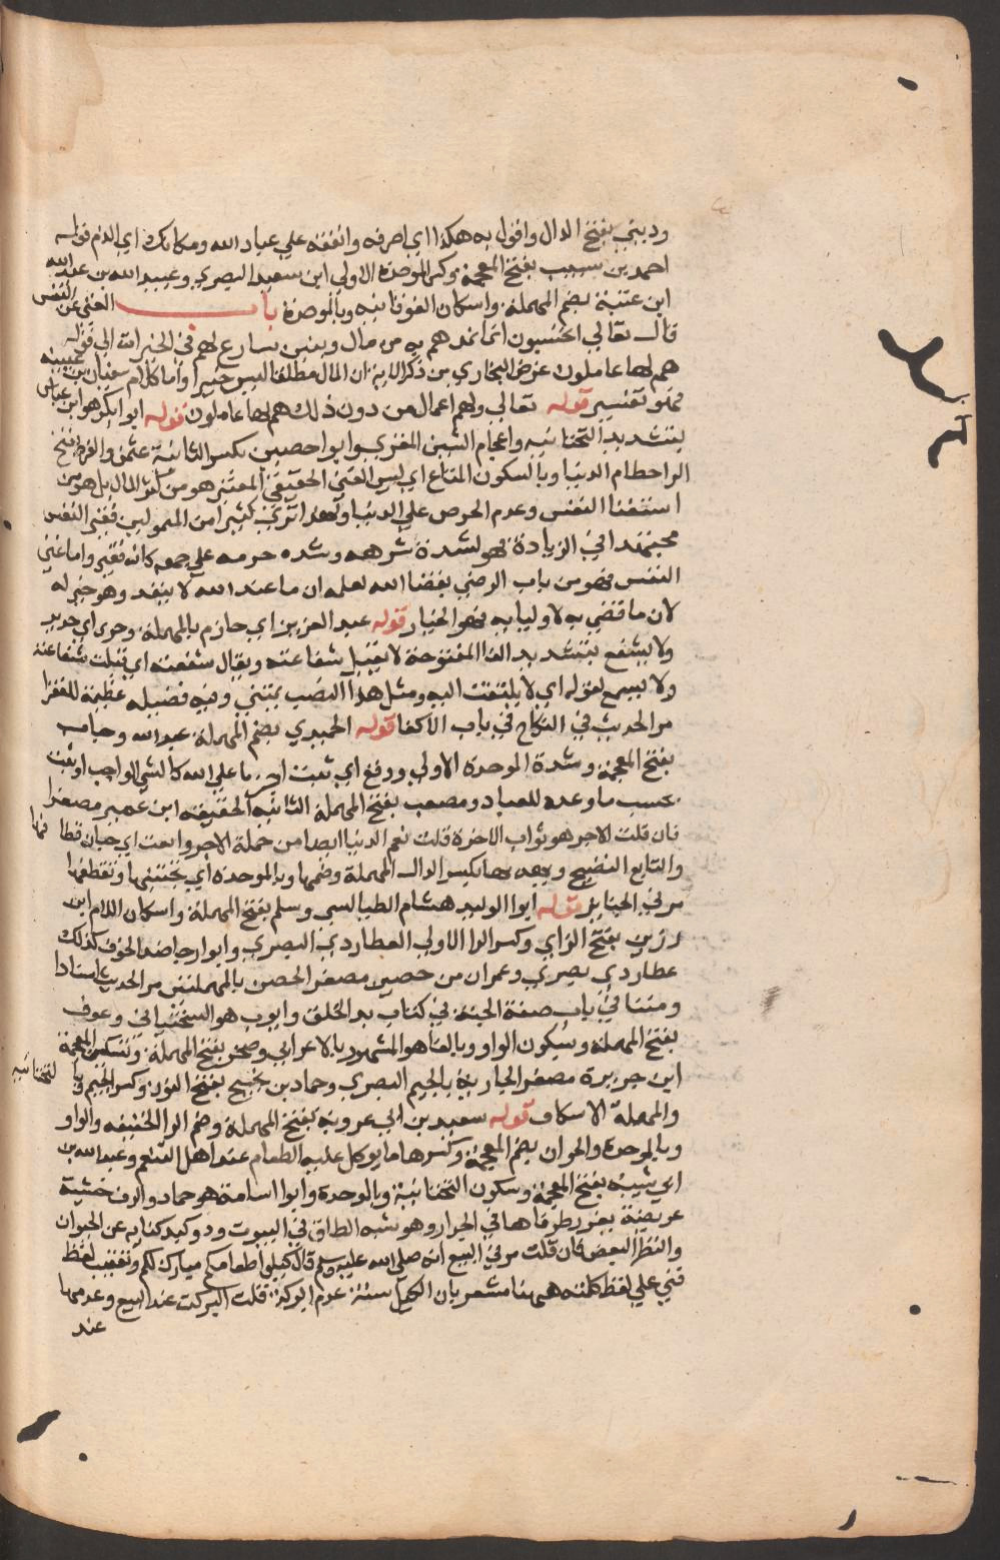 وديني بفتح الدال واقول به هكذا اي اصرفه وانفقه علي عباد الله ومكانك اي الزم قوله
احمد بن شبيب بفتح المعجمة وكسر الموحدة الاولي ابن سعيد البصري وعبيد الله بن عبد الله
ابن عتبة بضم المهملة واسكان الفوقانيه وبالموحدة باب الغني غني النفس
قال تعالي ايحسبون انما نمدهم به من مال وبنين نسارع لهم في الخيرات الي قوله
هم لها عاملون غرض البخاري من ذكر الاية ان المال مطلقا ليس خيرا واما كلام سفيان بن عيينه
فهو تفسير قوله تعالي ولهم اعمال من دون ذلك هم لها عاملون قوله ابو بكر هو ابن عياش
بتشديد التحتانيه واعجام الشين المقري وابو حصين بكسر الثانية عثمن والعرض بفتح
الرا حطام الدنيا وبالسكون المتاع اي ليس الغني الحقيقي المعتبر هو من كثر المال بل هو من
استغنا النفس وعدم الحرص علي الدنيا ولهذا تري كثيرا من المتمولين فقير النفس
مجتهدا في الزيادة فهو لشدة شرهه وشده حرصه علي جمعه كانه فقير واما غني
النفس فهو من باب الرضي بقضا الله لعلمه ان ما عند الله لا ينفد وهو خير له
لان ما قضي به لاوليايه فهو الخيار قوله عبد العزيز بن ابي حازم بالمهملة وحري اي جدير
ولا يشفع بتشديد الفا المفتوحة لا يقبل شفاعته ويقال شفعته اي قبلت شفاعته
ولا يسمع لقوله اي لا يلتفت اليه ومثل هذا النصب وفيه فضيله عظيمة للفقرا
مر الحديث في النكاح في باب الاكفا قوله الحميدي بضم المهملة عبد الله وخباب
بفتح المعجمة وشدة الموحدة الاولي ووقع اي ثبت اجرنا علي الله كالشي الواجب او ثبت
بحسب ما وعده للعباد ومصعب بفتح المهملة الثانية الخفيفة ابن عمير مصغرا
فان قلت الاجر هو ثواب الاخرة قلت نعم الدنيا ايضا من جملة الاجر وايعت اي حان قطافها
واليانع النضيج ويهدبها بكسر الدال المهملة وضمها وبالموحدة اي يجتنيها ويقطفها
مر في الجنايز قوله ابوا الوليد هشام الطيالسي وسلم بفتح المهملة واسكان اللام ابن
رزين بفتح الزاي وكسر الرا الاولي العطاردي البصري وابو رجا ضد الخوف كذلك
عطاردي بصري وعمران من حصين مصغر الحصن بالمهملتين مر الحديث اسنادا
ومتنا في باب صفة الجنة في كتاب بدا الخلق وايوب هو السختياني وعوف
بفتح المهملة وسكون الواو وبالفا هو المشهور بالاعرابي وصخر بفتح المهملة وتسكين المعجمة
ابن جويرة مصغر الجارية بالجيم البصري وحماد بن نجيح بفتح النون وكسر الجيم وبا لتحتانيه
والمهملة الاسكاف قوله سعيد بن ابي عروبة بفتح المهملة وضم الرا الخفيفه والواو
وبالموحدة والخوان بضم المعجمة وكسرها ما يوكل عليه الطعام عند اهل التنعم وعبد الله بن
ابي شيبة بفتح المعجمة وسكون التحتانية وبالوحدة وابوا اسامة هو حماد والرف خشبة
عريضة يغرز طرفاها في الجدار وهو شبه الطاق في البيوت وذو كبد كناية عن الحيوان
والشطر البعض فان قلت مر في البيع انه صلي الله عليه وسلم قال كيلوا طعامكم يبارك لكم وتعقيب لفظ
فني علي لفظ كلته ههنا مشعر بان الكيل سنة عدم البركة قلت البركت عند البيع وعدمها
عند